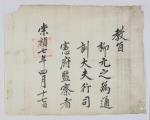 教旨
柳元之爲通
訓大夫行司
憲府監察者
崇禎七年四月十七日